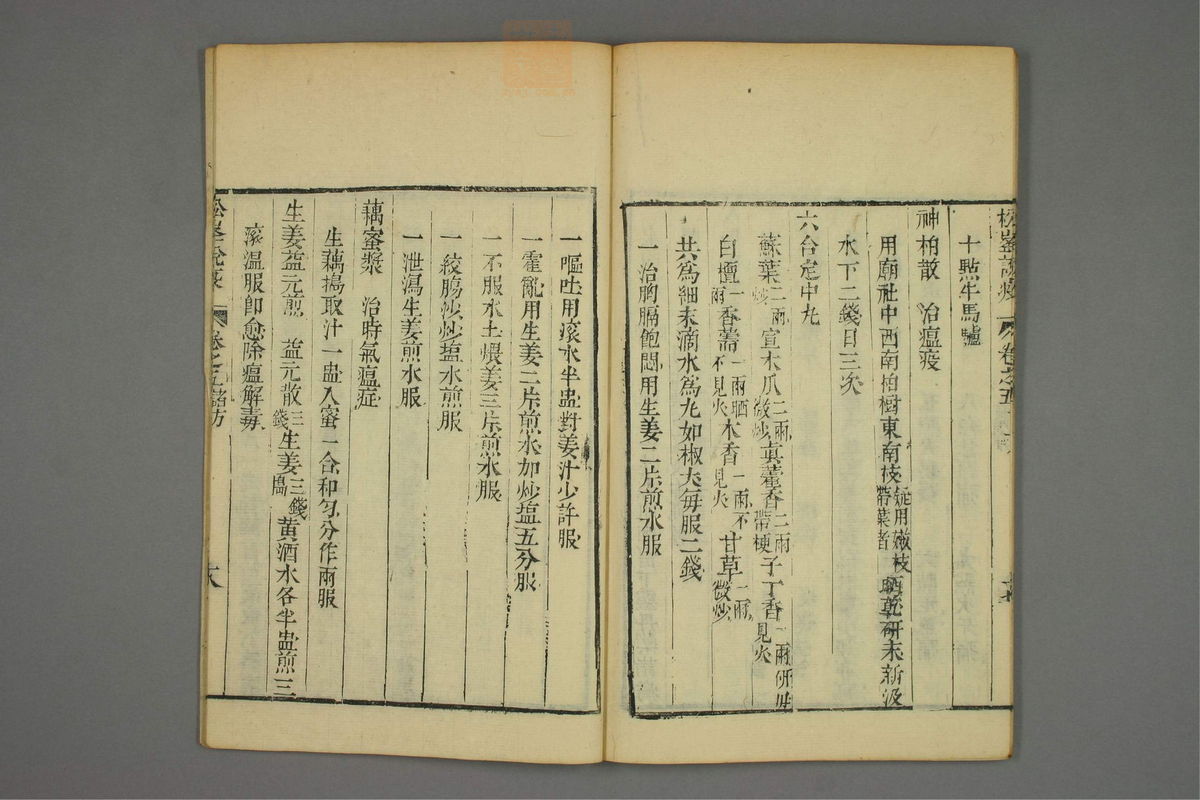 松峯說疫 卷之五
十點牛馬驢
神柏散 治瘟疫
用廟社中西南柏樹東南枝疑用嫩枝帶葉者晒乾研末新汲
水下二錢日三次
六合定中丸
蘇葉二兩炒宣木瓜二兩微炒真藿香二兩帶梗子丁香一兩研毋見火
白檀一兩香薷一兩晒不見火木香一兩不見火甘草一兩微炒
共為細末滴水為丸如椒大每服二錢
一治胸膈飽悶用生姜二片煎水服
一嘔吐用滾水半盅對姜汁少許服
一霍亂用生姜二片煎水加炒塩五分服
一不服水土煨姜三片煎水服
一絞腸沙炒塩水煎服
一泄瀉生姜煎水服
藕蜜漿 治時氣瘟症
生藕搗取汁一盅入蜜一合和勻分作兩服
生姜益元煎 益元散三錢生姜三錢搗黃酒水各半盅煎三
滾溫服卽愈除瘟解毒
松峯說疫 卷之五諸方